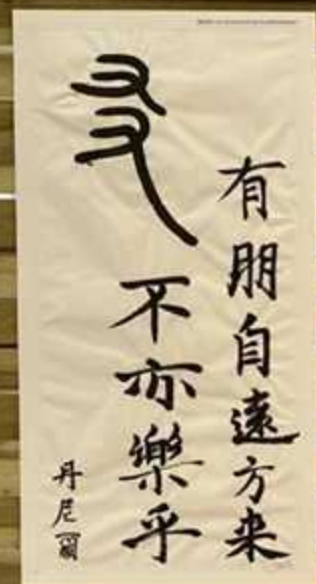 有朋自遠方来
不亦樂乎
丹尼爾